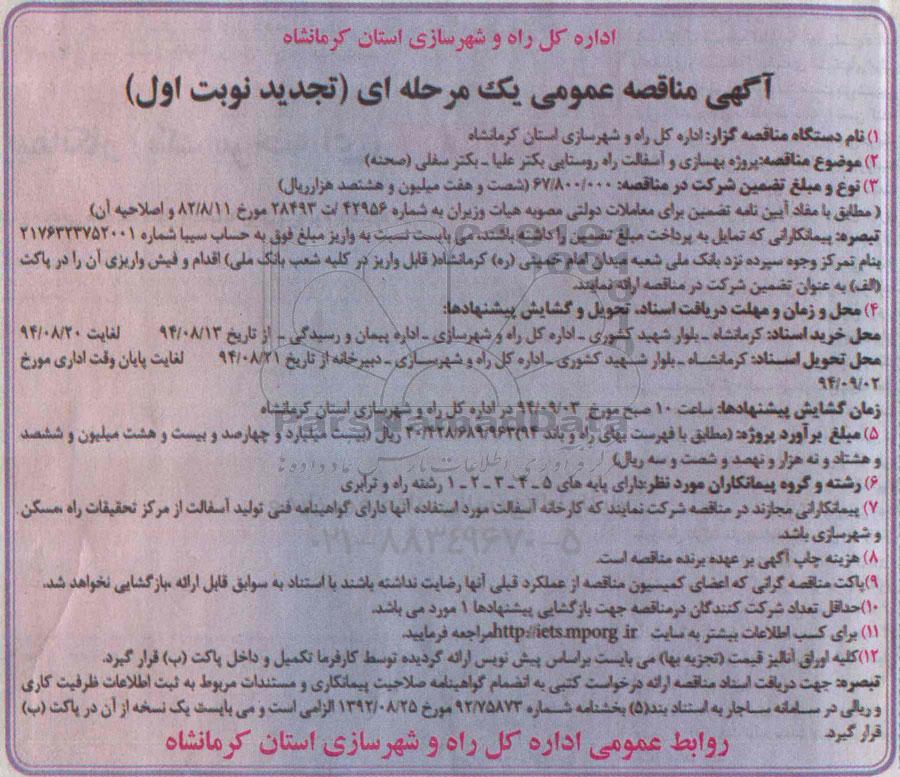 اداره کل راه و شهرسازی استان کرمانشاه
آگهی مناقصه عمومی یک مرحله ای (تجدید نوبت اول)
۱) نام دستگاه مناقصه گزار: اداره کل راه و شهرسازی استان کرمانشاه
۲) موضوع مناقصه:پروژه بهسازی و آسفالت راه روستایی بکتر علیا ـ بکتر سفلی (صحنه)
۳) نوع و مبلغ تضمین شرکت در مناقصه: ۶۷/۸۰۰/۰۰۰ (شصت و هفت میلیون و هشتصد هزارریال)
( مطابق با مفاد آیین نامه تضمین برای معاملات دولتی مصوبه هیات وزیران به شماره ۴۲۹۵۶ /ت ۲۸۴۹۳ مورخ ۸۲/۸/۱۱ و اصلاحیه آن)
تبصره: پیمانکارانی که تمایل به پرداخت مبلغ تضمین را داشته باشند، می بایست نسبت به واریز مبلغ فوق به حساب سیبا شماره ۲۱۷۶۳۲۳۷۵۲۰۰۱
بنام تمرکز وجوه سپرده نزد بانک ملی شعبه میدان امام خمینی (ره) کرمانشاه( قابل واریز در کلیه شعب بانک ملی) اقدام و فیش واریزی آن را در پاکت
(الف) به عنوان تضمین شرکت در مناقصه ارائه نمایند.
۴) محل و زمان و مهلت دریافت اسناد، تحویل و گشایش پیشنهادها:
محل خرید اسناد: کرمانشاه ـ بلوار شهید کشوری ـ اداره کل راه و شهرسازی ـ اداره پیمان و رسیدگی ـ از تاریخ ۹۴/۰۸/۱۳ لغایت ۹۴/۰۸/۲۰
محل تحویل اسـناد: کرمانشـاه ـ بلوار شـهید کشوری ـ اداره کل راه و شهرسـازی ـ دبیرخانه از تاریخ ۹۴/۰۸/۲۱ لغایت پایان وقت اداری مورخ
۹۴/۰۹/۰۲
زمان گشایش پیشنهادها: ساعت ۱۰ صبح مورخ ۹۴/۰۹/۰۳ در اداره کل راه و شهرسازی استان کرمانشاه
۵) مبلغ برآورد پروژه: (مطابق با فهرست بهای راه و باند ۹۴) ۲۰/۴۲۸/۶۸۹/۹۶۳ ریال (بیست میلیارد و چهارصد و بیست و هشت میلیون و ششصد
و هشتاد و نه هزار و نهصد و شصت و سه ریال)
۶) رشته و گروه پیمانکاران مورد نظر:دارای پایه های ۵ ـ ۴ ـ ۳ ـ ۲ ـ ۱ رشته راه و ترابری
۷) پیمانکارانی مجازند در مناقصه شرکت نمایند که کارخانه آسفالت مورد استفاده آنها دارای گواهینامه فنی تولید آسفالت از مرکز تحقیقات راه ،مسکن
و شهرسازی باشد.
۸) هزینه چاپ آگهی بر عهده برنده مناقصه است.
۹)پاکت مناقصه گرانی که اعضای کمیسیون مناقصه از عملکرد قبلی آنها رضایت نداشته باشند با استناد به سوابق قابل ارائه ،بازگشایی نخواهد شد.
۱۰)حداقل تعداد شرکت کنندگان درمناقصه جهت بازگشایی پیشنهادها ۱ مورد می باشد.
۱۱) برای کسب اطلاعات بیشتر به سایت http://iets.mporg.ir مراجعه فرمایید.
۱۲)کلیه اوراق آنالیز قیمت (تجزیه بها) می بایست براساس پیش نویس ارائه گردیده توسط کارفرما تکمیل و داخل پاکت (ب) قرار گیرد.
تبصره: جهت دریافت اسناد مناقصه ارائه درخواست کتبی به انضمام گواهینامه صلاحیت پیمانکاری و مستندات مربوط به ثبت اطلاعات ظرفیت کاری
و ریالی در سـامانه سـاجار به استناد بند(۵) بخشنامه شـماره ۹۲/۷۵۸۷۳ مورخ ۱۳۹۲/۰۸/۲۵ الزامی است و می بایست یک نسخه از آن در پاکت (ب)
قرار گیرد.
روابط عمومی اداره کل راه و شهرسازی استان کرمانشاه
ParsNamadData
مرکز فرآوری اطلاعات پارس نماد داده ها
۰۲۱-۸۸۳۴۹۶۷۰-۵